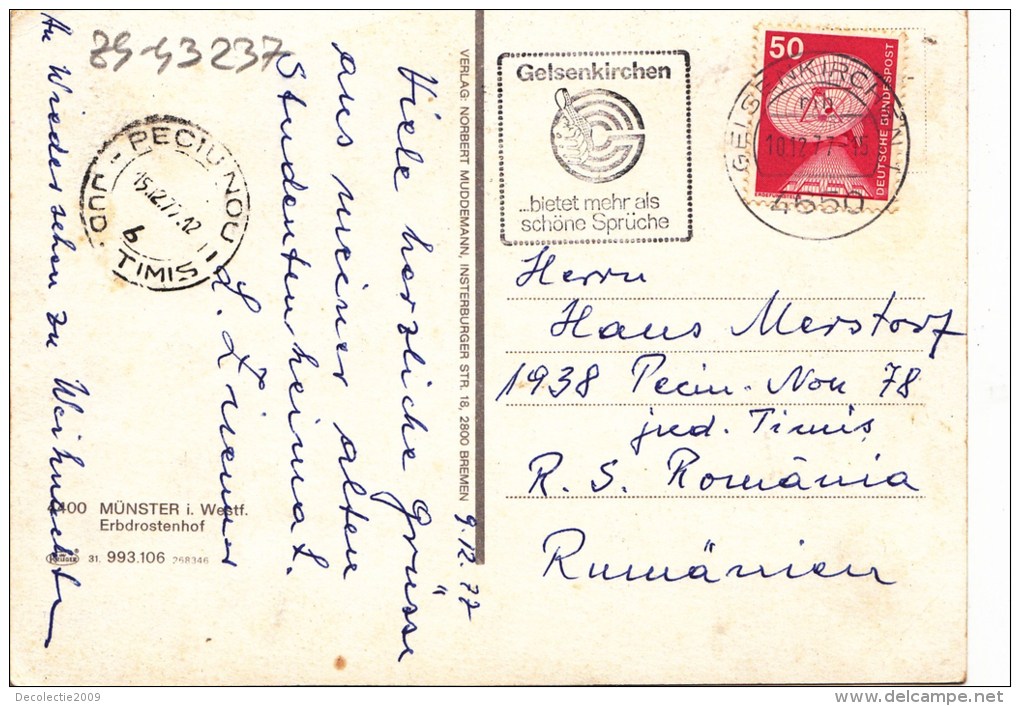 89-43237
9.12.77
Viele herzliche Grüsse
aus meiner alten
Studentenheimat.
An Wiedersehen zu Weihnachten
PECIU NOU
JUD. TIMIS
15.12.77.12
b
4400 MÜNSTER i. Westf.
Erbdrostenhof
KRÜGER 31. 993.106 268346
VERLAG: NORBERT MUDDEMANN, INSTERBURGER STR. 18, 2800 BREMEN
Gelsenkirchen
...bietet mehr als
schöne Sprüche
GELSENKIRCHEN 1
10.12.77-15
4650
50
DEUTSCHE BUNDESPOST
Herrn
Hans Merstorf
1938 Peciu-Nou 78
jud. Timis
R. S. România
Rumänien
Decolectie2009
www.delcampe.net